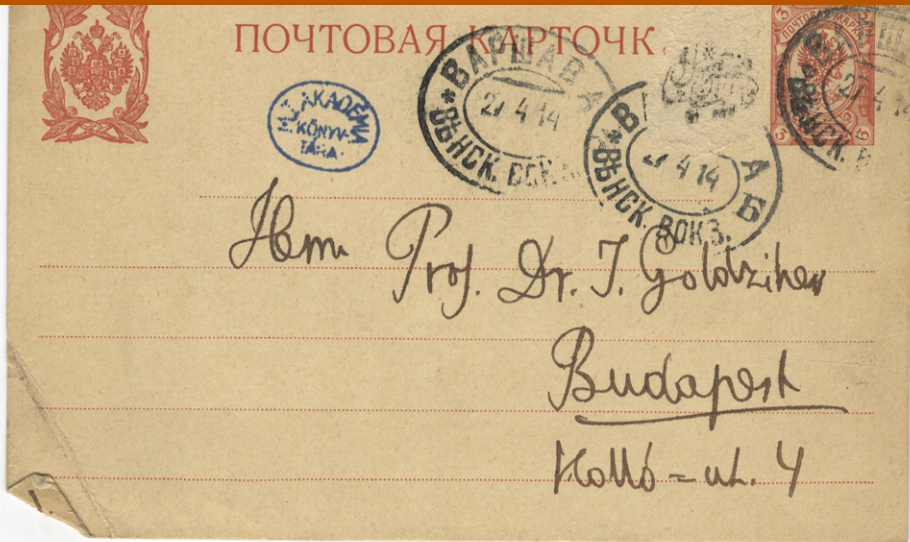 ПОЧТОВАЯ КАРТОЧК
М. T. AKADÉMIA
KÖNYV-
TÁRA
*ВАРШАВА
27 4 14
ВѢНСК. ВОКЗ.
27 4 14
ВѢНСК. ВОКЗ.
Б
ПОЧТОВАЯ МАРКА
3
27 4 14
Herrn
Prof. Dr. I. Goldziher
Budapest
Holló-ut. 4